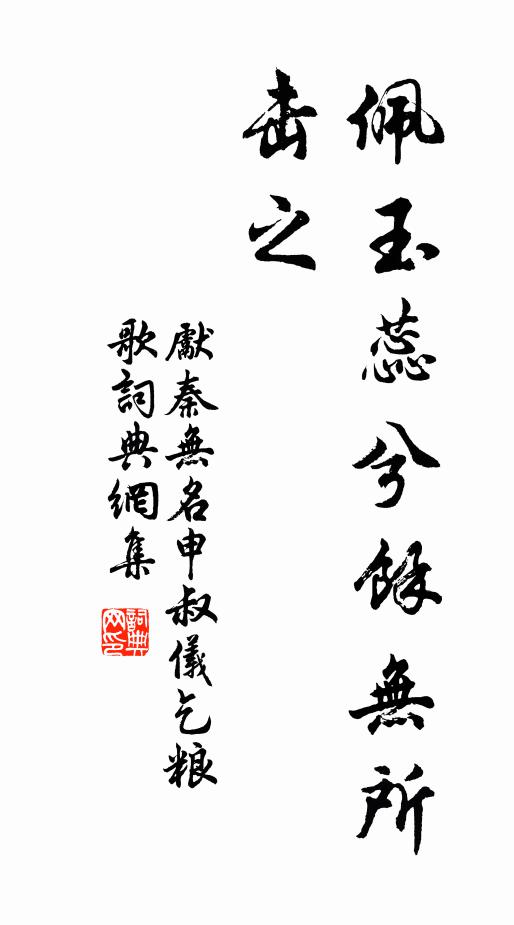 佩玉蕊兮餘無所
击之
獻秦無名申叔儀乞粮
歌詞典網集
詞典
网印